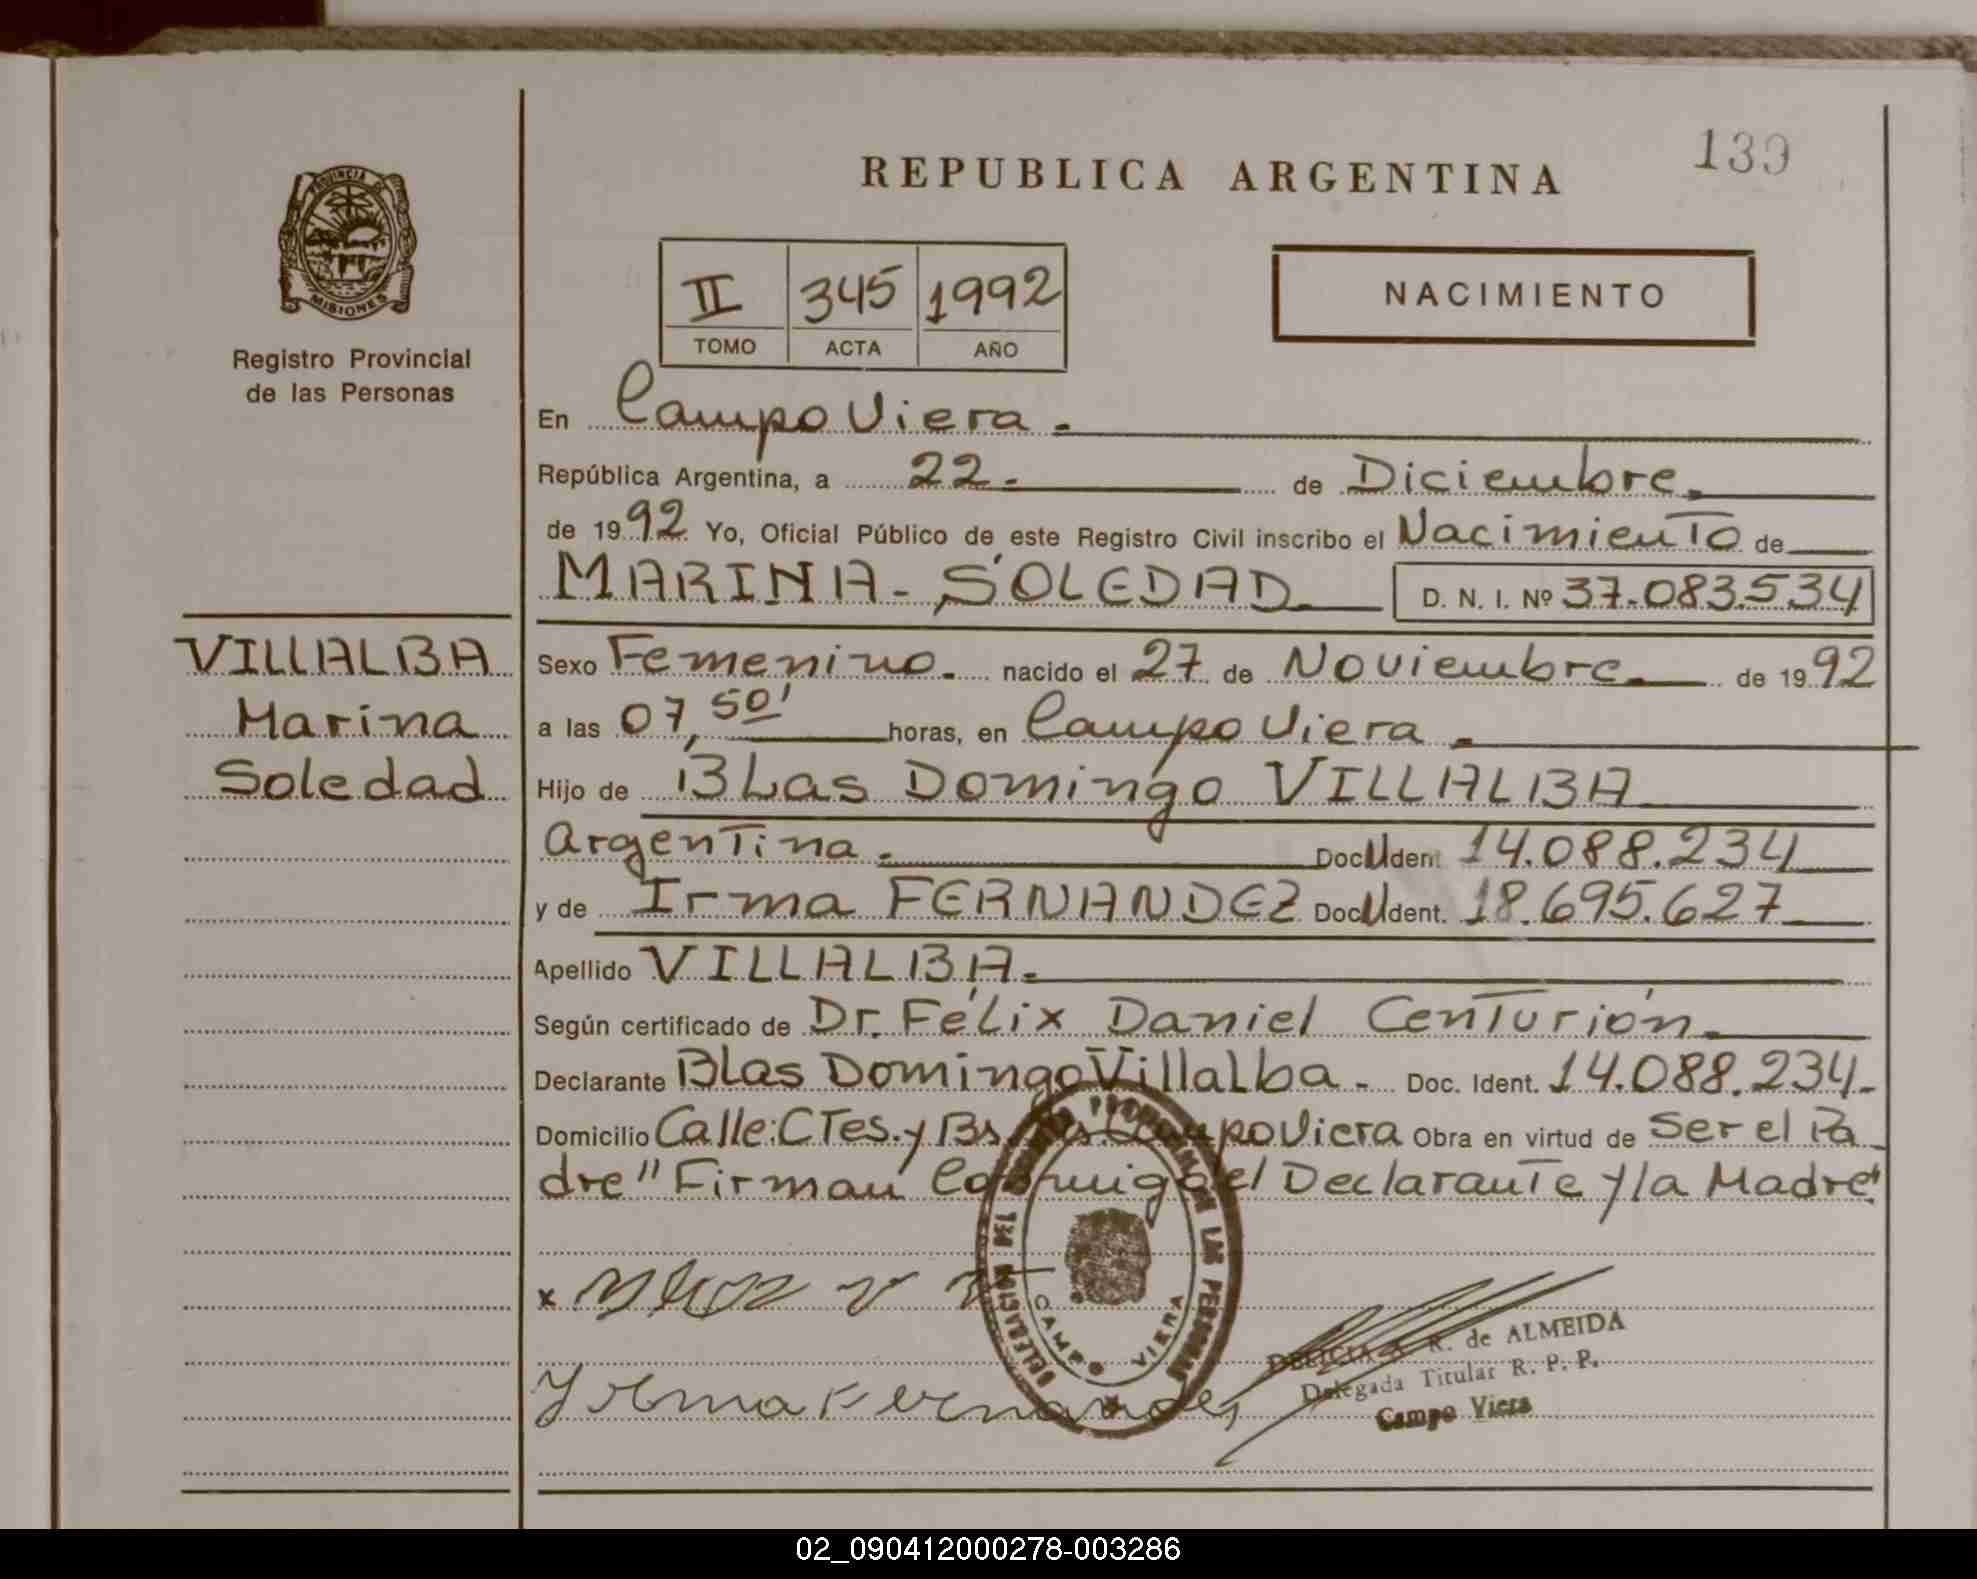 139
REPUBLICA ARGENTINA
PROVINCIA DE
MISIONES
Registro Provincial
de las Personas
II 345 1992
TOMO ACTA AÑO
NACIMIENTO
En Campo Viera.
República Argentina, a 22. de Diciembre.
de 1992. Yo, Oficial Público de este Registro Civil inscribo el Nacimiento de
MARINA - SOLEDAD D. N. I. Nº 37.083.534
VILLALBA
Marina
Soledad
Sexo Femenino. nacido el 27 de Noviembre de 1992
a las 07,50' horas, en Campo Viera.
Hijo de Blas Domingo VILLALBA
Argentina. Doc. Ident. 14.088.234
y de Irma FERNANDEZ Doc. Ident. 18.695.627
Apellido VILLALBA.
Según certificado de Dr. Félix Daniel Centurión.
Declarante Blas Domingo Villalba - Doc. Ident. 14.088.234-
Domicilio Calle: CTes. y Bs. Campo Viera Obra en virtud de Ser el Pa
dre" Firman Conmigo el Declarante y la Madre"
DELEGACION DEL REGISTRO PROVINCIAL DE LAS PERSONAS
CAMPO VIERA
x
Irma Fernandez
DELICIA R. de ALMEIDA
Delegada Titular R. P. P.
Campo Viera
02_090412000278-003286